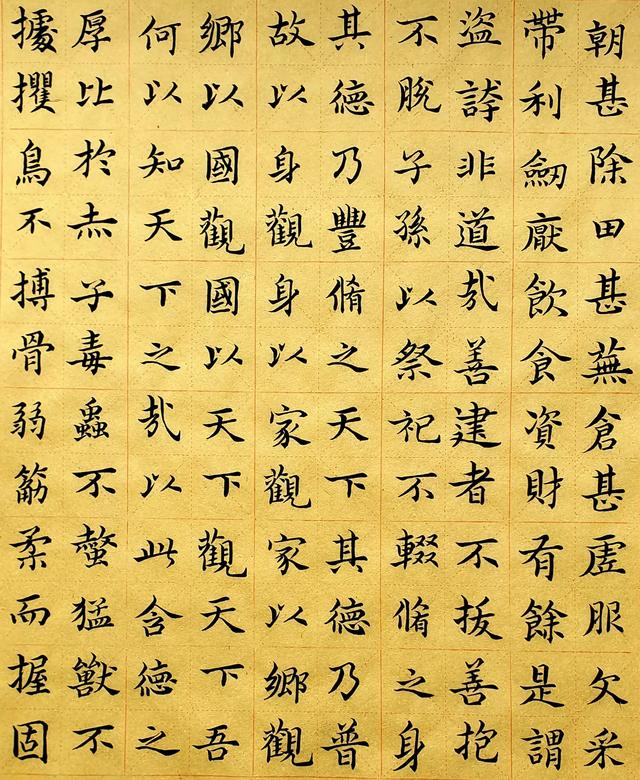 朝甚除田甚蕪倉甚虛服文采
帶利劒厭飲食資財有餘是謂
盜誇非道哉善建者不拔善抱
不脫子孫以祭祀不輟脩之身
其德乃豐脩之天下其德乃普
故以身觀身以家觀家以鄉觀
鄉以國觀國以天下觀天下吾
何以知天下之哉以此含德之
厚比於赤子毒蟲不螫猛獸不
據攫鳥不搏骨弱筋柔而握固